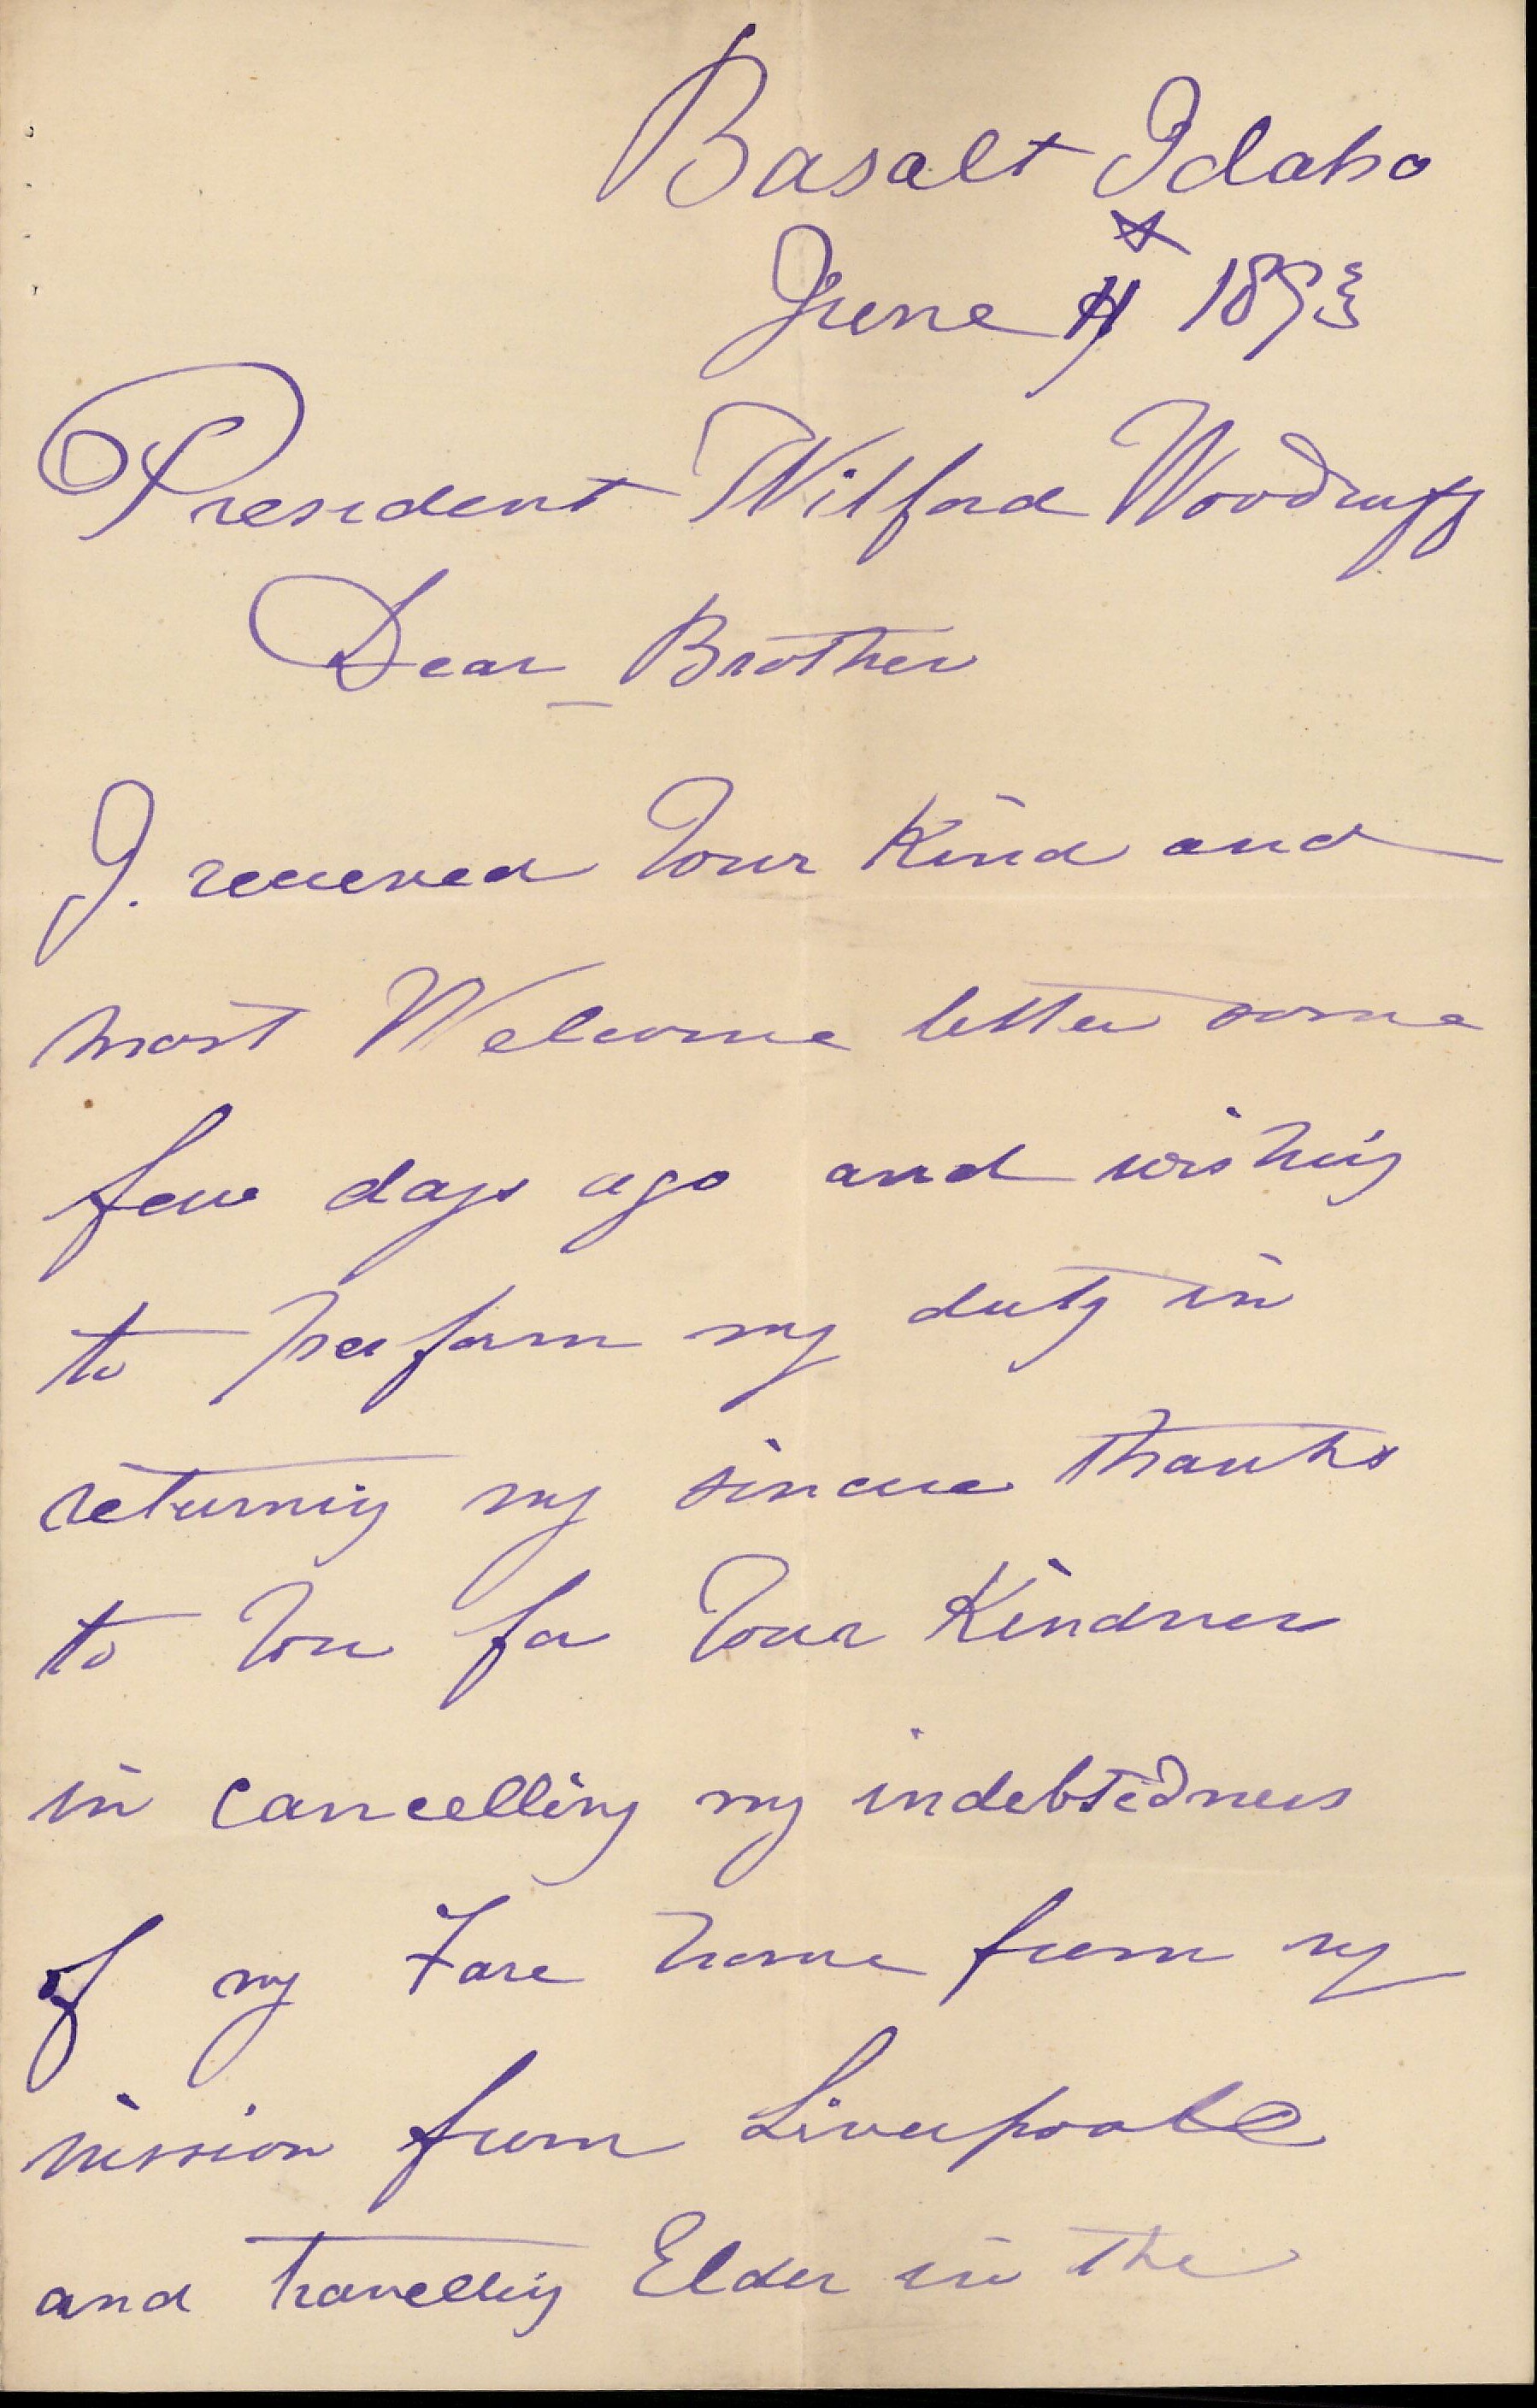 Basalt Idaho
June 1893
President Wilford Woodruff
Dear Brother
I. received Your Kind and
most Welcome letter some
few days ago and wishing
to perform my duty in
returning my sincere thanks
to You for Your Kindness
in cancelling my indebtedness
of my Fare home from my
mission from Liverpoole
and travelling Elder in the